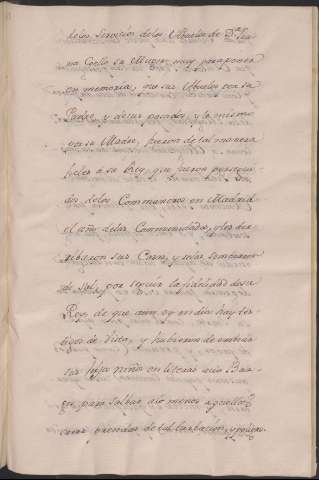 de los Servicios de los Abuelos de D.ª Jua
na Coello su Muger, muy para poner
en memoria, que sus Abuelos por su
Padre, y de sus pasados, y lo mismo
por su Madre, fueron de tal manera
fieles à su Rey, que fueron persegui-
dos de los Comuneros en Madrid
el año de las Communidades, y les der-
ribaron sus Casas, y se las sembraron
de Sal, por seguir la fidelidad de su
Rey, de que aun oy en dia hay tes-
tigos de vista, y hubieron de embiar
sus hijos niños en literas à
para salbar alo menos aquellas
prendas de tal turbacion, y